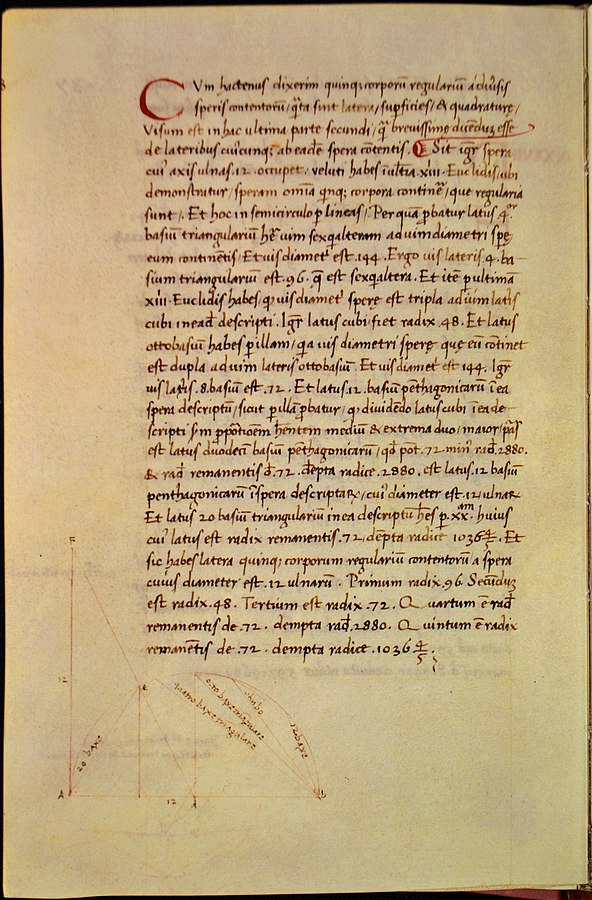 CVm hactenus dixerim quinq; corporū regulariū a diūsis
speris contentorū / q̄ta sint latera / supficies / & quadraturę /
Visum est in hac ultima parte secundi / q̄ brevissime dicenduȝ esse
de lateribus cuicunq; ab eadē spera cōtentis. Sit igr̄ spera
cui axis ulnas .12. occupet. veluti habes ī ultīa .xiii. Euclidis / ubi
demonstratur / speram omīa qinq; corpora continēr / que regularia
sunt /. Et hoc in semicirculo p lineas /. Per quā pbatur latus .4ᵒʳ.
basiū triangulariū hēr vim sexq̄alteram ad vim diametri spę
eum continētis / Et vis diametˡ est .144. Ergo vis lateris .4. ba-
sium triangularium est .96. q̄ est sexq̄altera. Et itē p ultimā
xiii. Euclidis habes / q vis diametˡ sperę est tripla ad vim latīs
cubi in eadˡ descripti. Igr̄ latus cubi fiet radix .48. Et latus
ottobasiū habes p illam / q̄a vis diametri sperę quę eū cōtinet
est dupla ad vim lateris ottobasiū. Et vis diametˡ est .144. Igr̄
vis latis .8. basiū est .72. Et latus .12. basiū pēthagonicarū ī ea
spera descriptū / sicut p illā pbatur / q dividēdo latus cubi ī ea de-
scripti sm ppōtioēm hn̄tem mediū & extrema duo / maior / ps̄
est latus duodecī basiū pēthagonicarū / qd pōt .72. minˡ rad .2880.
& radˡ remanentis d .72. dēpta radice .2880. est latus .12 basiū
penthagonicarū ī spera descriptaꝝ / cui diameter est .12 / ulnaꝝ
Et latus 20 basiū triangulariū in ea descriptū hēs p .xxᵃᵐ. huius
cui latus est radix remanentis .72 / dēpta radice 1036 4/5. Et
sic habes latera quinq; corporum regularium contentorū a spera
cuius diameter est .12 ulnarū. Primum radix .96. Secūduȝ
est radix .48. Tertium est radix .72. Quartum ē radˡ
remanentis de .72. dempta radˡ .2880. Quintum ē radix
remanētis de .72. dempta radice .1036 4/5 ;
F
12
e
20 baxe
A
12
d
b
cubo
octo baxe triangulare
quatro baxe triangulare
12 baxe